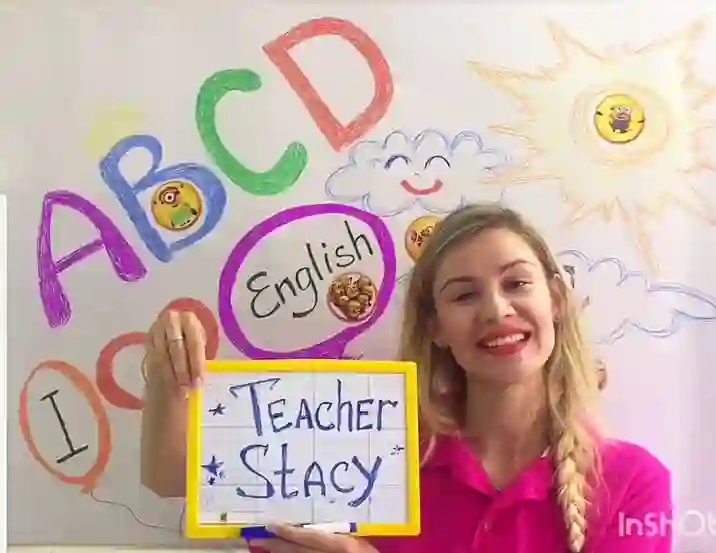 ABCD
English
I
TEACHER
STACY
InSHOt